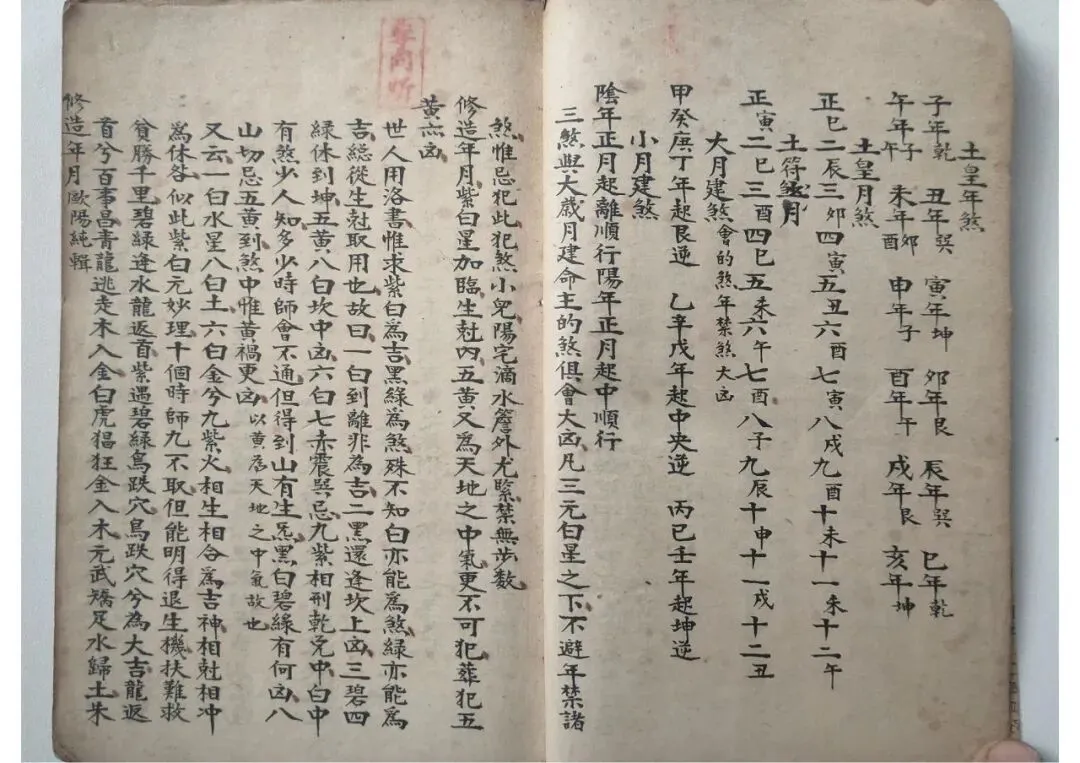 土皇年煞
子年乾 丑年巽 寅年坤 夘年艮 辰年巽 巳年乾
午年午 未年酉 申年子 酉年午 戌年艮 亥年坤
子 夘
土皇月煞
正巳二辰三夘四寅五丑六酉七寅八戌九酉十未十一未十二午
土符月
正寅二巳三酉四巳五未六午七酉八子九辰十申十一戌十二丑
大月建煞會的煞年禁煞大凶
甲癸庚丁年起艮逆 乙辛戊年起中央逆 丙巳壬年起坤逆
小月建煞
陰年正月起離順行陽年正月起中順行
三煞與大歲月建命主的煞俱會大凶凡三元白星之下不避年禁諸
煞惟忌犯此犯煞小兒陽宅滴水簷外尤緊禁無步数
修造年月紫白星加臨生尅内五黄又為天地之中氣更不可犯葬犯五
黄亦凶
世人用洛書惟求紫白為吉黑綠為煞殊不知白亦能為煞綠亦能為
吉總從生尅取用也故曰一白到離非為吉二黑還逢坎上凶三碧四
緑休到坤五黄八白坎中凶六白七赤震巽忌九紫相刑乾兌中白中
有煞少人知多少時師會不通但得到山有生炁黑白碧緑有何凶八
山切忌五黄到煞中惟黄禍更凶 以黄為天地之中氣故也
又云一白水星八白土六白金兮九紫火相生相合為吉神相尅相冲
為休咎似此紫白元妙理十個時師九不取但能明得退生機扶難救
貧勝千里碧緑逢水龍返首紫遇碧緑鳥跌穴鳥跌穴兮為大吉龍返
首兮百事昌青龍逃走木入金白虎猖狂金入木元武矯足水歸土朱
修造年月歐陽純輯